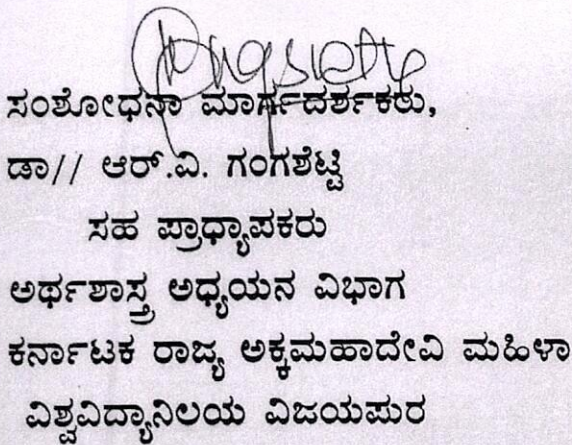 ಸಂಶೋಧನಾ ಮಾರ್ಗದರ್ಶಕರು,
ಡಾ// ಆರ್.ವಿ. ಗಂಗಶೆಟ್ಟಿ
ಸಹ ಪ್ರಾಧ್ಯಾಪಕರು
ಅರ್ಥಶಾಸ್ತ್ರ ಅಧ್ಯಯನ ವಿಭಾಗ
ಕರ್ನಾಟಕ ರಾಜ್ಯ ಅಕ್ಕಮಹಾದೇವಿ ಮಹಿಳಾ
ವಿಶ್ವವಿದ್ಯಾನಿಲಯ ವಿಜಯಪುರ